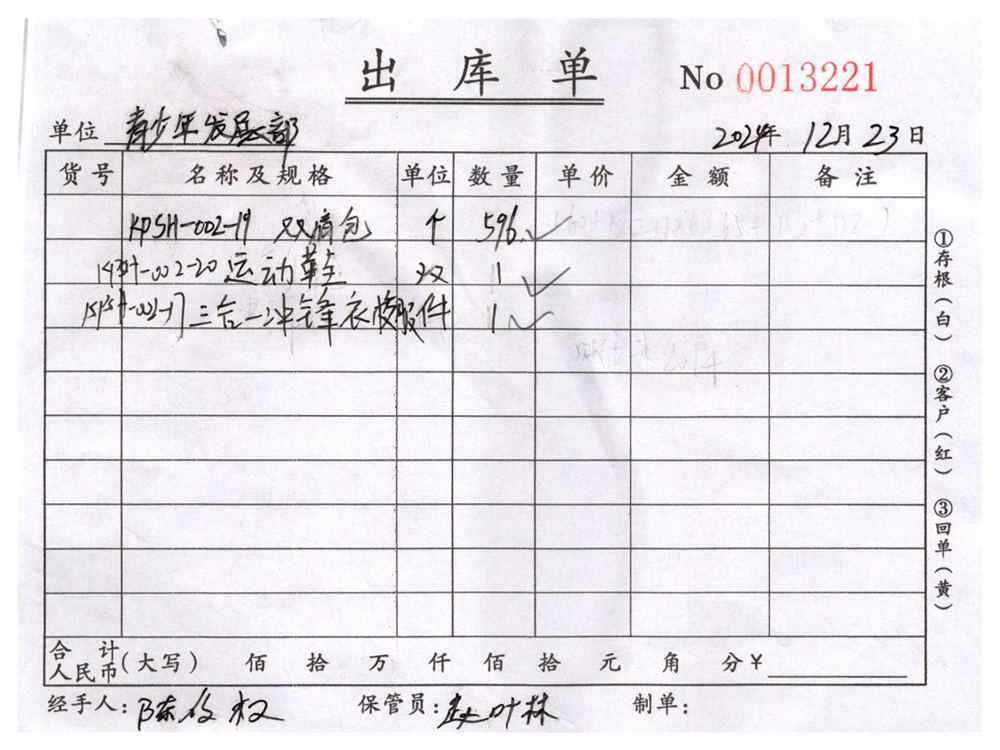 出库单 No 0013221
单位 青少年发展部 2024年 12月 23日
货号 名称及规格 单位 数量 单价 金额 备注
KPSH-002-19 双肩包 个 596
002-20 运动鞋 双 1
三合一冲锋衣 件 1
①存根(白)
②客户(红)
③回单(黄)
合计人民币(大写) 佰 拾 万 仟 佰 拾 元 角 分¥
经手人:陈 权 保管员:赵叶林 制单: